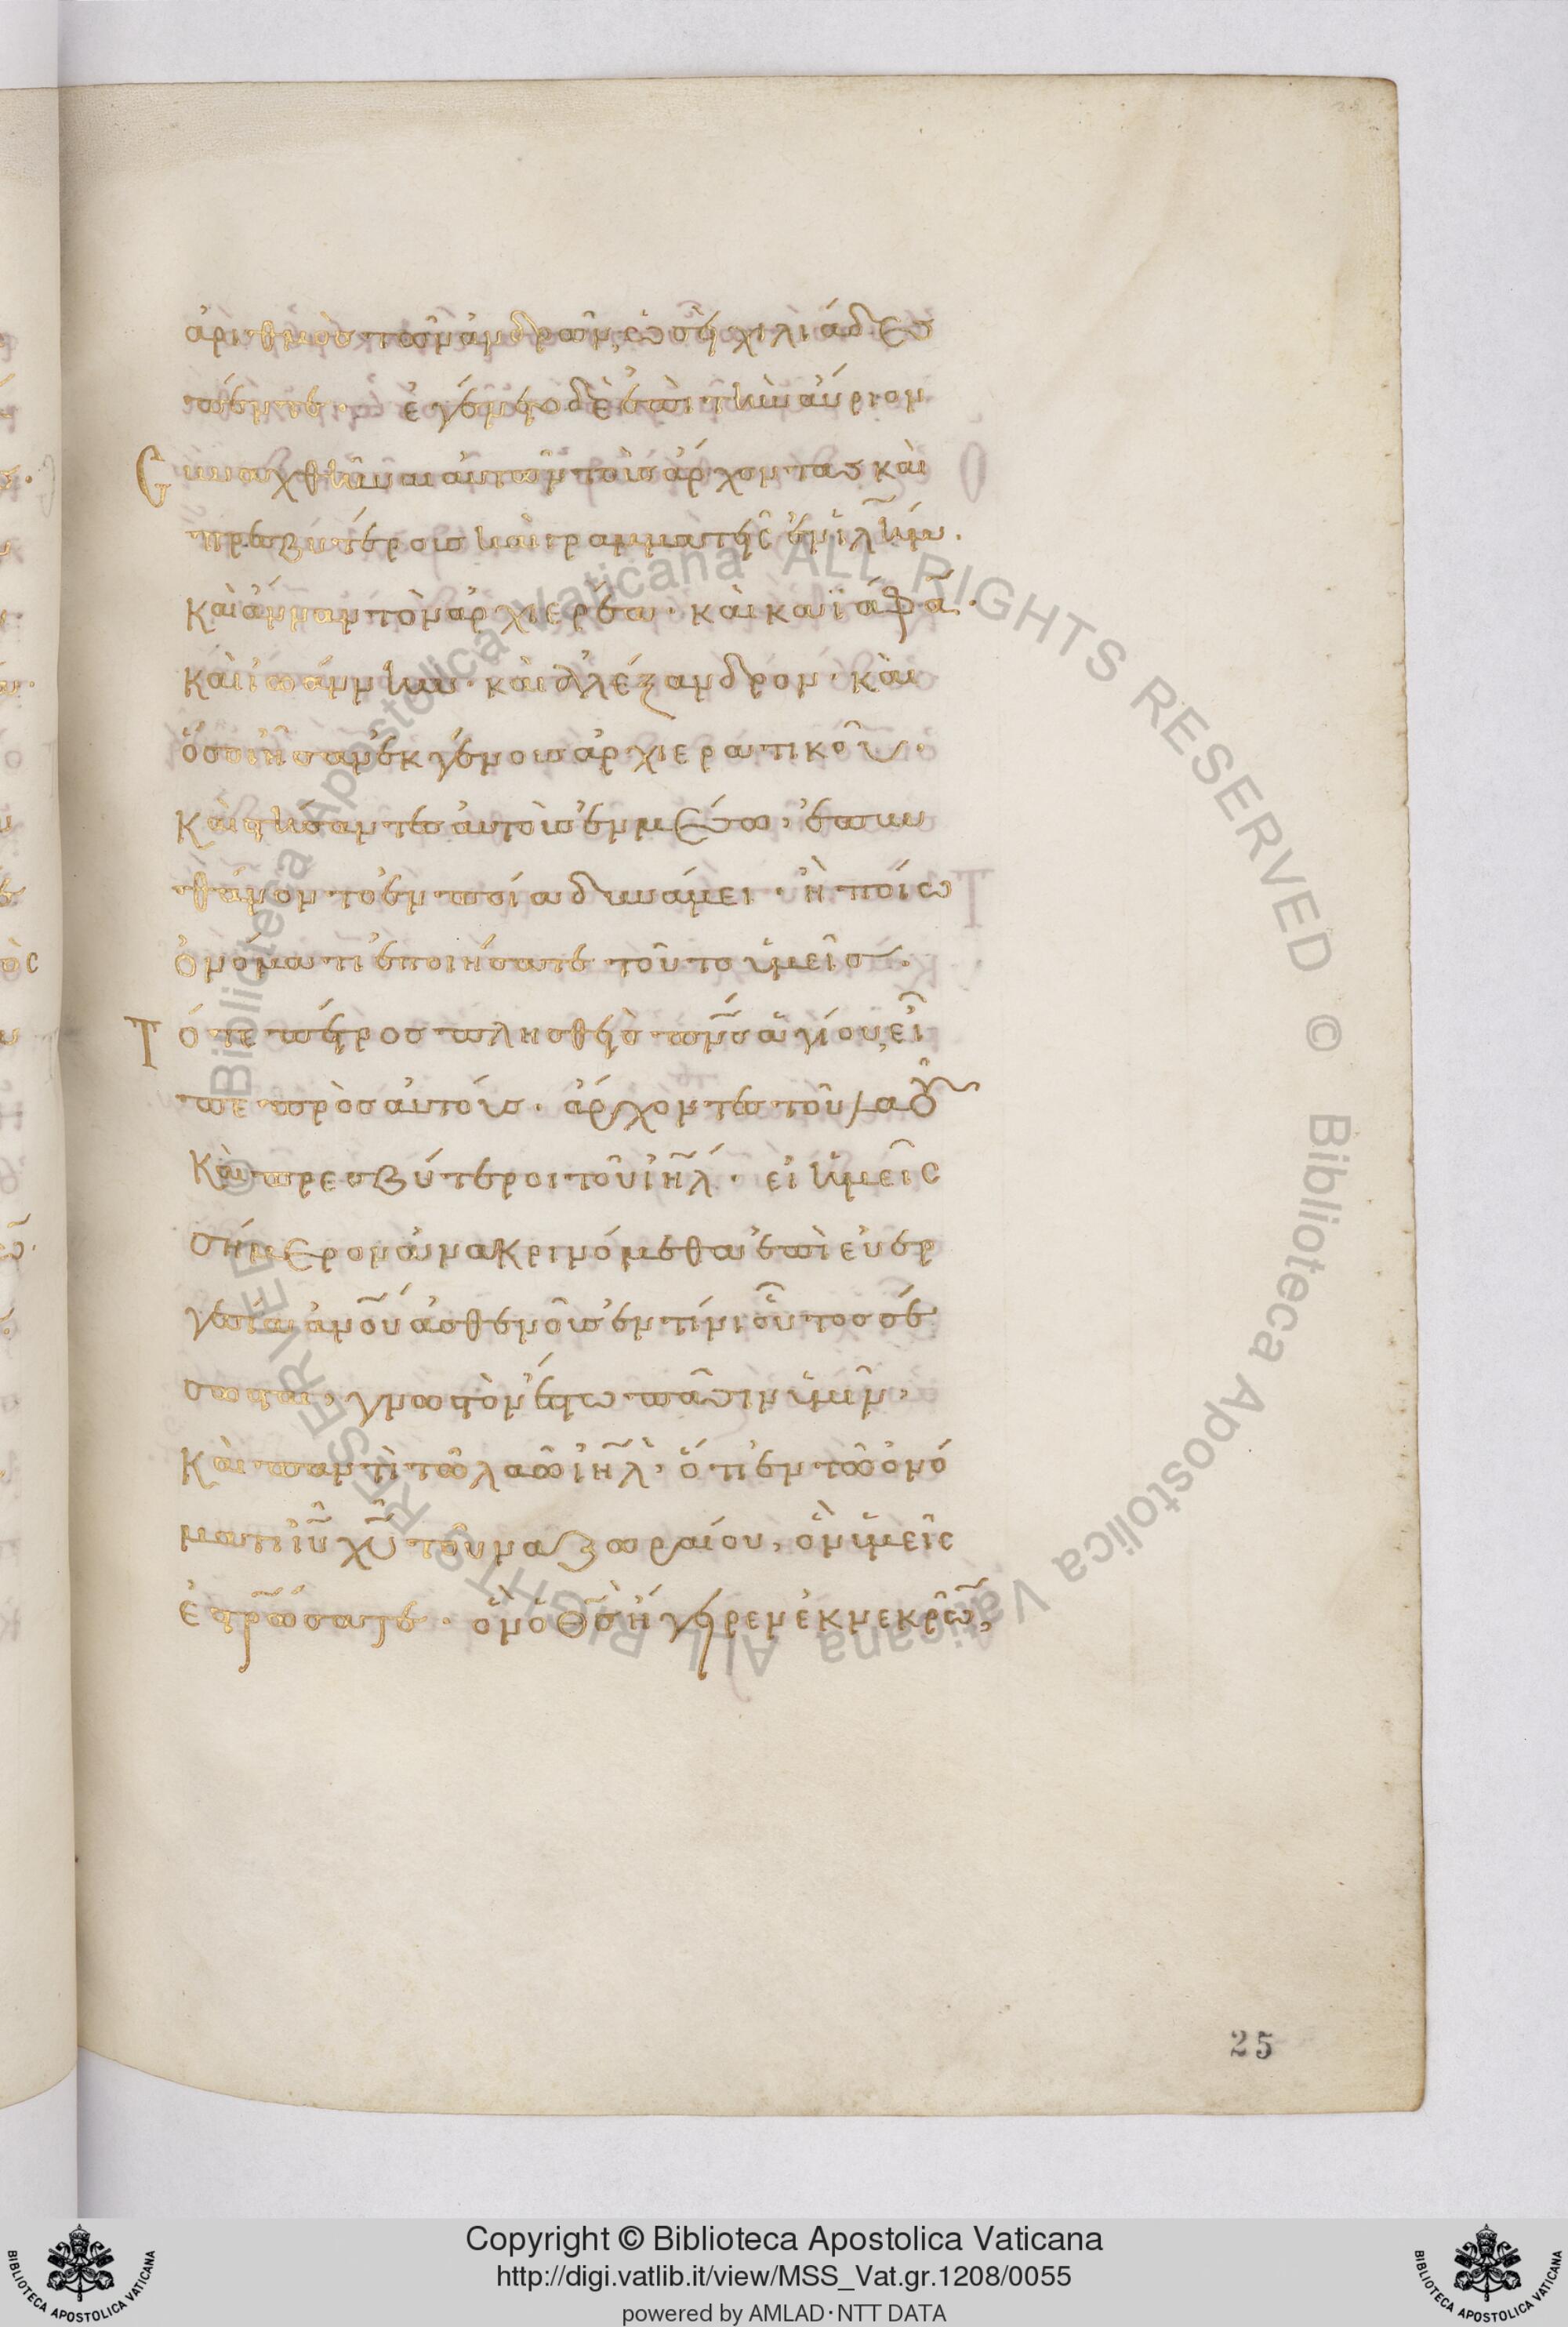 ἀριθμὸς τῶν ἀνδρῶν, ὡσεὶ χιλιάδες
πέντε. ἐγένετο δὲ ἐπὶ τὴν αὔριον
Συναχθῆναι αὐτῶν τοὺς ἄρχοντας καὶ
πρεσβυτέρους καὶ γραμματεῖς ἐν ἰλ̅ήμ.
καὶ ἄνναν τὸν ἀρχιερέα. καὶ καϊάφα̅.
καὶ ἰωάννην. καὶ ἀλέξανδρον. καὶ
ὅσοι ἦσαν ἐκ γένους ἀρχιερατικοῦ.
καὶ στήσαντες αὐτοὺς ἐν μέσω, ἐπυν
θάνοντο ἐν ποία δυνάμει. ἢ ποίω
ὀνόματι ἐποιήσατε τοῦτο ὑμεῖς.
Τότε πέτρος πλησθεὶς πν̅ς ἁγίου, εἶ
πε πρὸς αὐτούς. ἄρχοντες τοῦ λαοῦ
Καὶ πρεσβύτεροι τοῦ ἰη̅λ. εἰ ἡμεῖς
σήμερον ἀνακρινόμεθα ἐπὶ εὐερ
γεσία ἀν̅ου ἀσθενοῦς ἐν τίνι οὗτος σέ
σωσται, γνωστὸν ἔστω πᾶσιν ὑμῖν,
καὶ παντὶ τῶ λαῶ ἰη̅λ. ὅτι ἐν τῶ ὀνό
ματι ἰυ̅ χυ̅ τοῦ ναζωραίου, ὃν ὑμεῖς
ἐστρ̅ώσατε. ὃν ὁ θ̅ς ἤγειρεν ἐκ νεκρῶ̅,
25
Copyright © Biblioteca Apostolica Vaticana
http://digi.vatlib.it/view/MSS_Vat.gr.1208/0055
powered by AMLAD·NTT DATA
BIBLIOTECA APOSTOLICA VATICANA
BIBLIOTECA APOSTOLICA VATICANA
© Biblioteca Apostolica Vaticana ALL RIGHTS RESERVED © Biblioteca Apostolica Vaticana ALL RIGHTS RESERVED